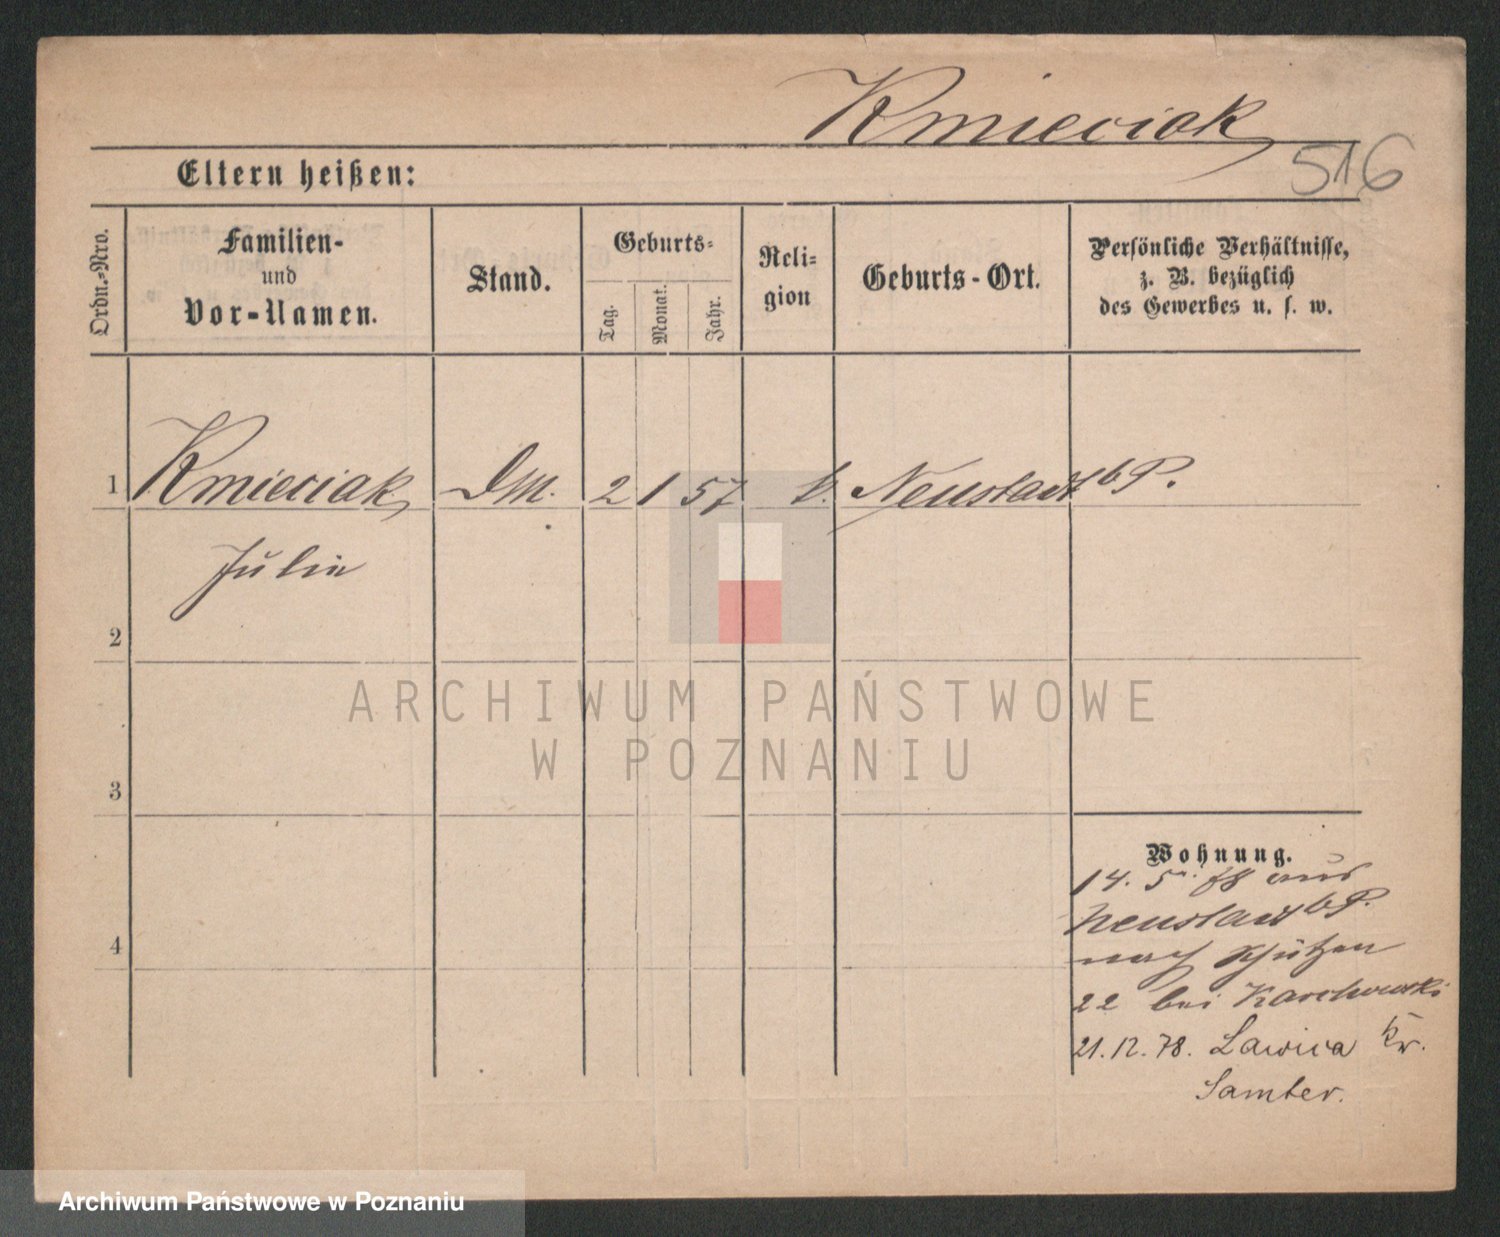 Kmieciak
516
Eltern heißen:
Ordn.-Nro.
Familien-
und
Vor-Namen.
Stand.
Geburts-
Tag.
Monat.
Jahr.
Reli-
gion
Geburts-Ort.
Persönliche Verhältnisse,
z. B. bezüglich
des Gewerbes u. s. w.
1 Kmieciak DM. 2 1 57 k. Neustadt b P.
Julie
2
3
4
Wohnung.
14. 5. 78 aus
Neustadt b P.
nach Schützen
22 bei Karchowski
21.12.78. Lawica Kr.
Samter.
ARCHIWUM PAŃSTWOWE
W POZNANIU
Archiwum Państwowe w Poznaniu